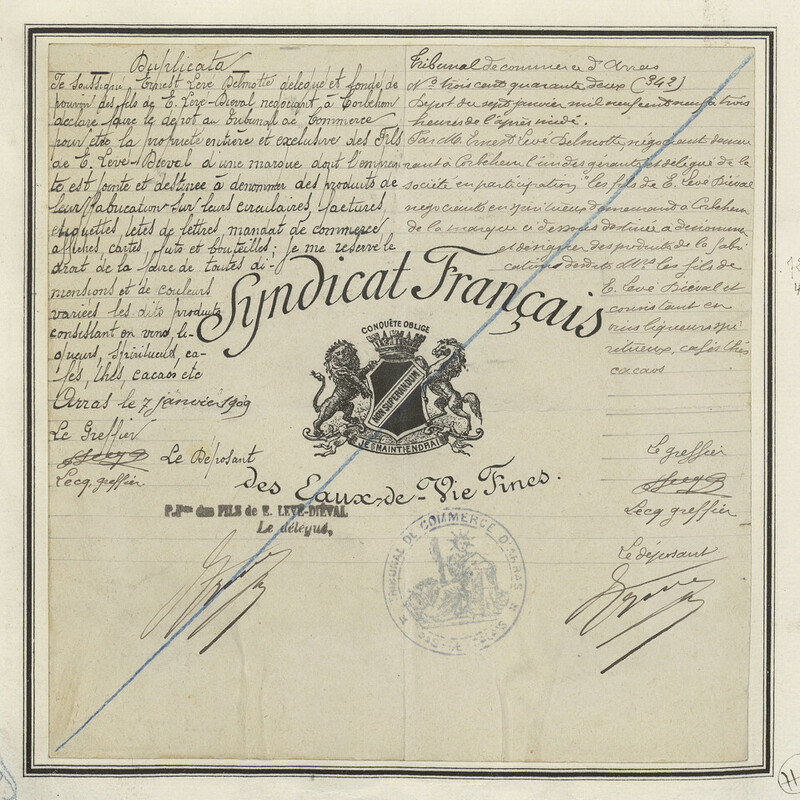 Duplicata
Je soussigné, Ernest Levé Delmotte délégué et fondé de
pouvoir des fils de E. Levé-Diéval négociant, à Corbehem
déclare faire le dépôt au Tribunal de Commerce
pour être la propriété entière et exclusive des Fils
de E. Levé-Diéval d'une marque dont l'emprein
te est jointe et destinée à dénommer des produits de
leur fabrication sur leurs circulaires, factures,
étiquettes, têtes de lettres, mandat de commerce
affiches, cartes, futs et bouteilles; je me reserve le
droit de la faire de toutes di-
mensions et de couleurs
variées les dits produits
consistant en vins, li-
queurs, spiritueux, ca-
fés, thés, cacaos etc
Arras le 7 janvier 1909
Le Greffier
Lecq greffier.
Le Déposant
Tribunal de commerce d'Arras
No trois cent quarante deux (342)
Dépôt du sept janvier mil neuf cent neuf à trois
heures de l'après midi.
Par M. Ernest Levé Delmotte, négociant demeu
rant à Corbehem l'un des gérants et délégué de la
société en participation, "les fils de E. Levé Diéval
négociants en spiritueux demeurant à Corbehem
de la marque ci dessous destinée à dénommer
et désigner des produits de la fabri
cation desdits Mrs les fils de
E. Levé Diéval et
consistant en
vins liqueurs spi
ritueux, cafés thés
cacaos
Le greffier
Lecq greffier
Le déposant
Syndicat Français
CONQUÊTE OBLIGE
NON SUPERANDUM
JE MAINTIENDRAI
des Eaux-de-Vie Fines.
P.Pon des FILS de E. LEVÉ-DIÉVAL
Le délégué,
TRIBUNAL DE COMMERCE D'ARRAS
PAS-DE-CALAIS